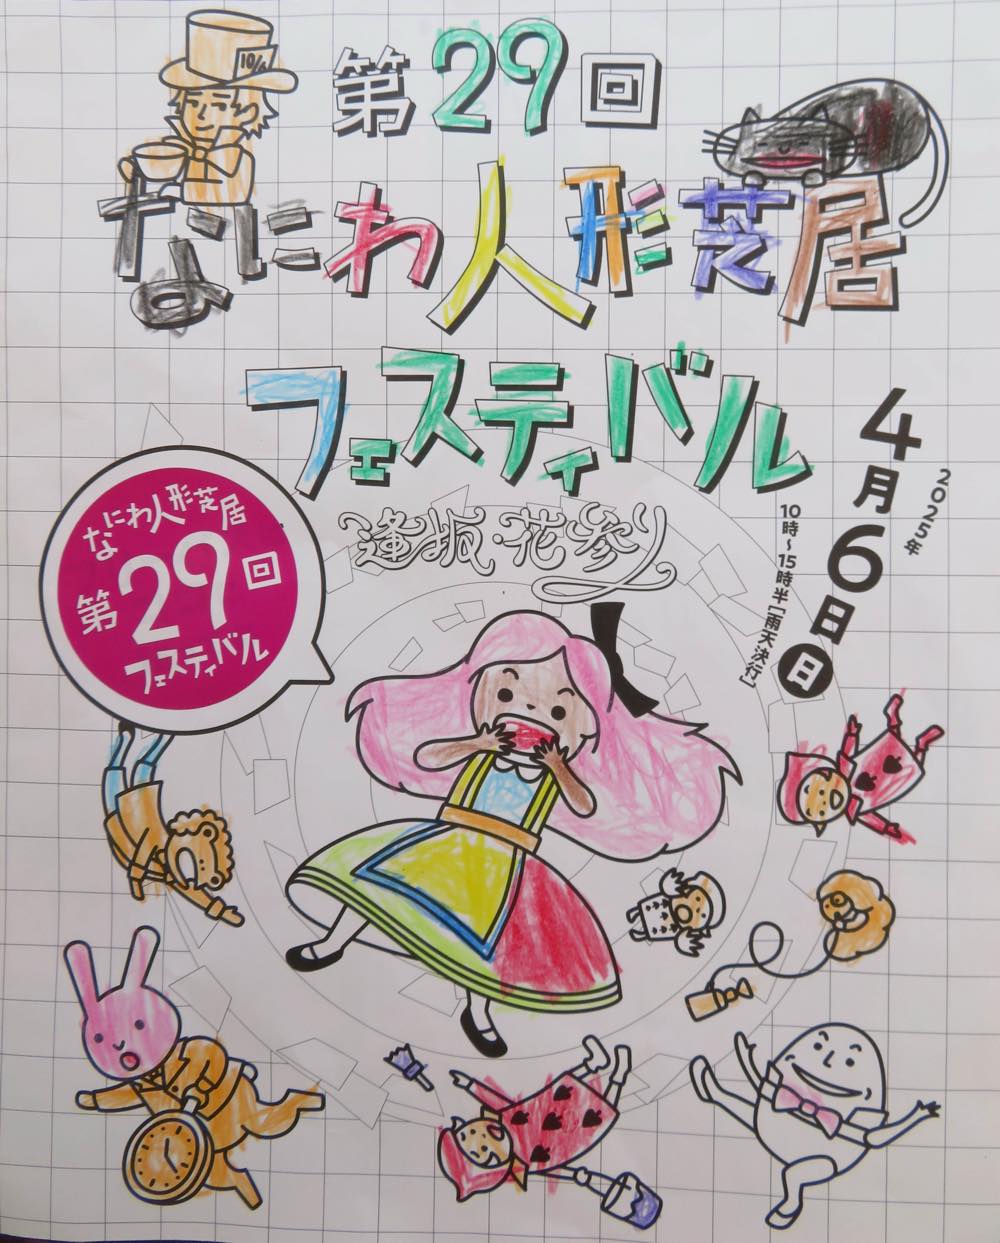 第29回
10/6
なにわ人形芝居
フェスティバル
逢坂・花参り
2025年
4月6日日
10時～15時半[雨天決行]
なにわ人形芝居
第29回
フェスティバル